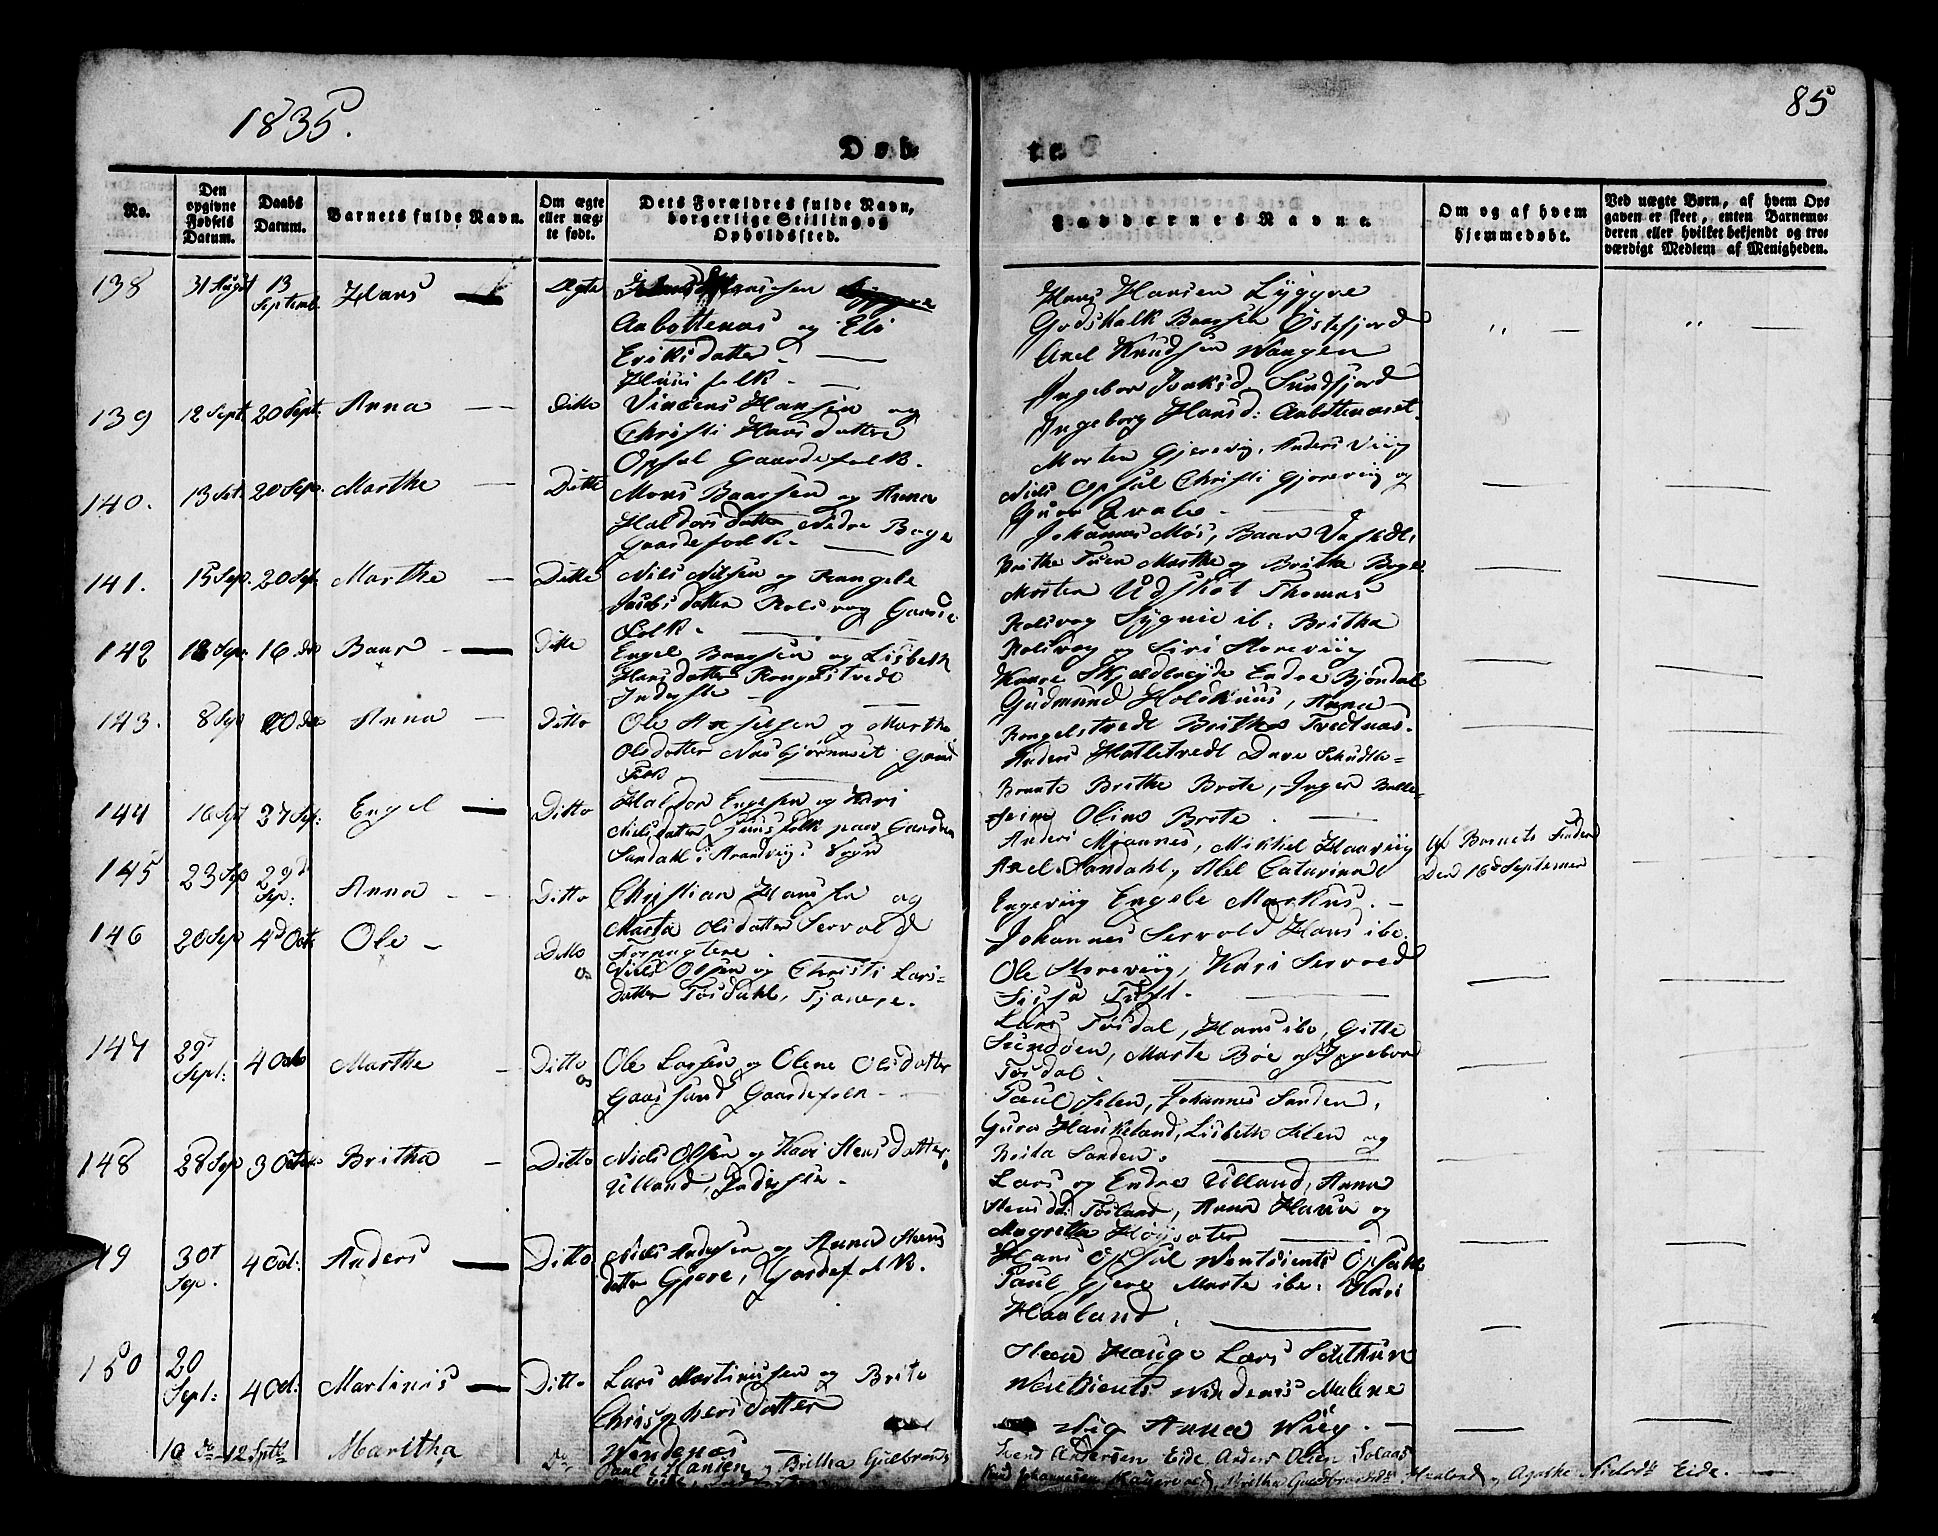 1835.
85
Døb
te.
No.
Den opgivne Fødsels Datum.
Daabs Datum.
Barnets fulde Navn.
Om ægte eller uægte født.
Dets Forældres fulde Navn, borgerlige Stilling og Opholdssted.
Faddernes Navne.
Om og af hvem hjemmedøbt.
Ved uægte Børn, af hvem Opgaven er skeet, enten Barnemoderen eller hvilket bekjendt og troværdigt Medlem af Menigheden.
138 31 August 13 Septemb. Hans Ægte
Aabottenæs og Eli
Eriksdatter
Huusfolk.
Hans Hansen Lyggre
Godskalk Baarsen Østefjord
Axel Knudsen Wangen
Ingebor Isaksd. Sundfjord
Ingeborg Hansd: Aabottenæset.
139 12 Sept. 20 Sept. Anna Ditto
Vincens Hansen og
Christi Hansdatter
Opsal Gaardefolk.
Morten Gjerevig, Anders Viig
Niels Opsal Christi Gjerevig og
Guro Qvale.
140. 13 Set. 20 Sep. Marthe Ditto
Mons Baarsen og Anna
Haldorsdatter Nedre Boge
Gaardefolk.
Johannes Møs, Baar
Brithe Marthe og Britha Boge
141. 15 Sep. 20 Sep. Marthe Ditto
Niels Nilsen og Rangele
Jacobsdatter Rolsvog Gaarde
Folk.
Morten Udskot Thomas
Rolsvog Sygnie ib. Britha
Rolsvog og Siri Storeviig
142 18 Sep. 16 do Baar Ditto
Engel Baarsen og Lisbeth
Hansdatter Rongelstvedt
Inderste
Endre Bjøndal
Gudmund Holdhuus, Anna
Rongelstvedt Britha Tvedtnæs.
143. 8 Sep 20 do Anna Ditto
Ole Axselsen og Marthe
Olsdatter Nasbjørnaset Gaard
Folk
Anders Hatletvedt
Brote Brithe Brote, Inger
Oline Brote.
144 16 Sept 27 Sep: Engel Ditto
Haldor Engelsen og Kari
Nielsdatter, Huusfolk paa Gaarden
Sandahl i Strandviigs Sogn
Anders Mjaanes, Mikkel Haaviig
Axel Sandahl, Abel Catarina
Engeviig Engele Markus.
Af Barnets Fader
Den 16d Septemer
145 23 Sep 29d Sep: Anna Ditto
Christian Hansen og
Marta Olsdatter Servold
Forpagtere.
Johannes Servold Hans ibe.
Ole Storeviig, Kari Servold
Sissa Tuft.
146 20 Sep 4d Oct. Ole Ditto
Niels Olsen og Christi Lars-
datter Tøsdahl, Tjenere.
Lars Tøsdal, Hans ibe, Gitte
Sundøen, Marte Bøe og Ingebor
Tøsdal.
147 29d Sept: 4 Octo Marthe Ditto
Ole Larsen og Olene Olsdatter
Gaassand Gaardefolk
Paul Selen, Johannes Sanden,
Guro Haukeland, Lisbeth Selen og
Brita Sanden.
148 28 Sep 3 Octob Britha Ditto
Niels Olsen og Kari Stensdatter
Ulland, Inderster.
Lars og Endre Ulland, Anna
Stensda: Tøsland, Anna Hauso og
Magritta Høysæter
149 30t Sep. 4 Oct: Anders Ditto
Niels Andersen og Anna Steens
datter Gjere, Gardefolk.
Hans Opsal Wentsients Opsahl
Paul Gjere Marte ibe. Kari
Haaland.
150 20 Sept: 4 Oct: Martinis Ditto
Lars Martinusen og Brite
Chrisphersdatter
Wendenæs
Steen Hauge Lars Solthun
Wentsients Windenæs Malene
Wiig Anna Wiig.
10 do 12 Septb Maritha Do
Paul Hansen og Britha Gulbrands
Eide
Svend Andersen Eide, Anders Olsen Solaas
Knud Johannesen, Britha Guldbrandsdr Haaland, Agathe Nielsdr Eide.